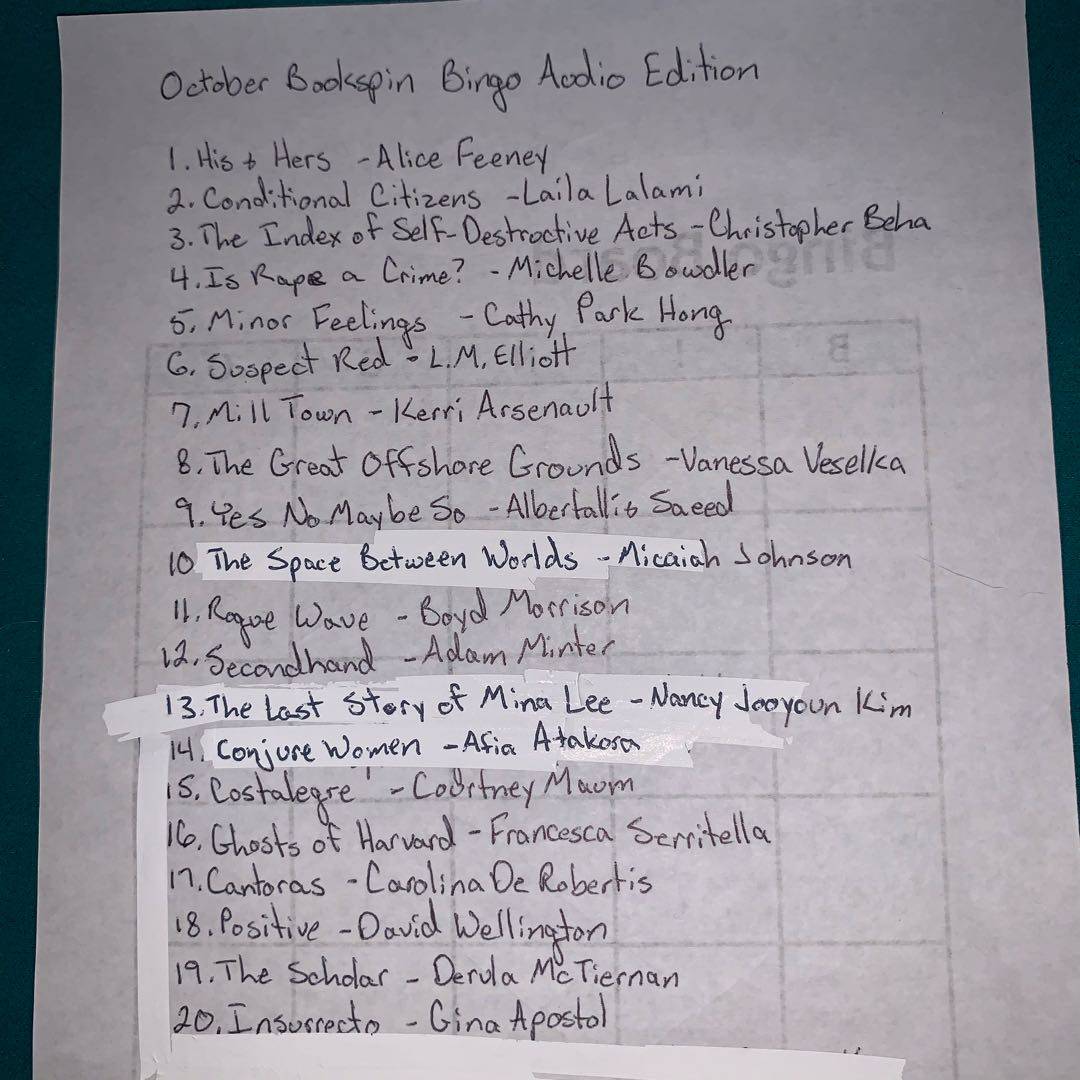 October Bookspin Bingo Audio Edition
1. His & Hers - Alice Feeney
2. Conditional Citizens - Laila Lalami
3. The Index of Self-Destructive Acts - Christopher Beha
4. Is Rape a Crime? - Michelle Bowdler
5. Minor Feelings - Cathy Park Hong
6. Suspect Red - L.M. Elliott
7. Mill Town - Kerri Arsenault
8. The Great Offshore Grounds - Vanessa Veselka
9. Yes No Maybe So - Albertalli & Saeed
10 The Space Between Worlds - Micaiah Johnson
11. Rogue Wave - Boyd Morrison
12. Secondhand - Adam Minter
13. The Last Story of Mina Lee - Nancy Jooyoun Kim
14. Conjure Women - Afia Atakora
15. Costalegre - Courtney Maum
16. Ghosts of Harvard - Francesca Serritella
17. Cantoras - Carolina De Robertis
18. Positive - David Wellington
19. The Scholar - Dervla McTiernan
20. Insurrecto - Gina Apostol